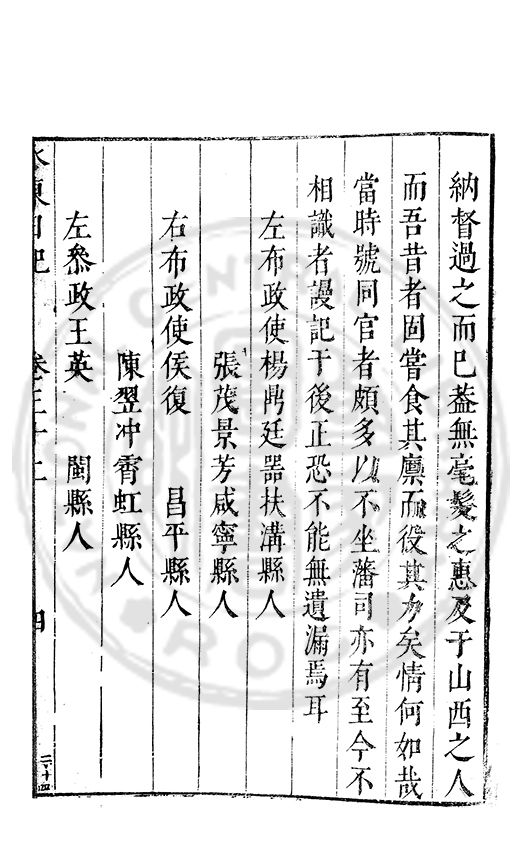 納督過之而已蓋無毫髮之惠及于山西之人
而吾昔者固嘗食其廪而役其力矣情何如哉
當時號同官者頗多以不坐藩司亦有至今不
相識者謾記于後正恐不能無遺漏焉耳
左布政使楊鼎廷器扶溝縣人
張茂景芳咸寧縣人
右布政使侯復 昌平縣人
陳翌冲霄虹縣人
左叅政王英 閩縣人
水東日記 卷三十二 四